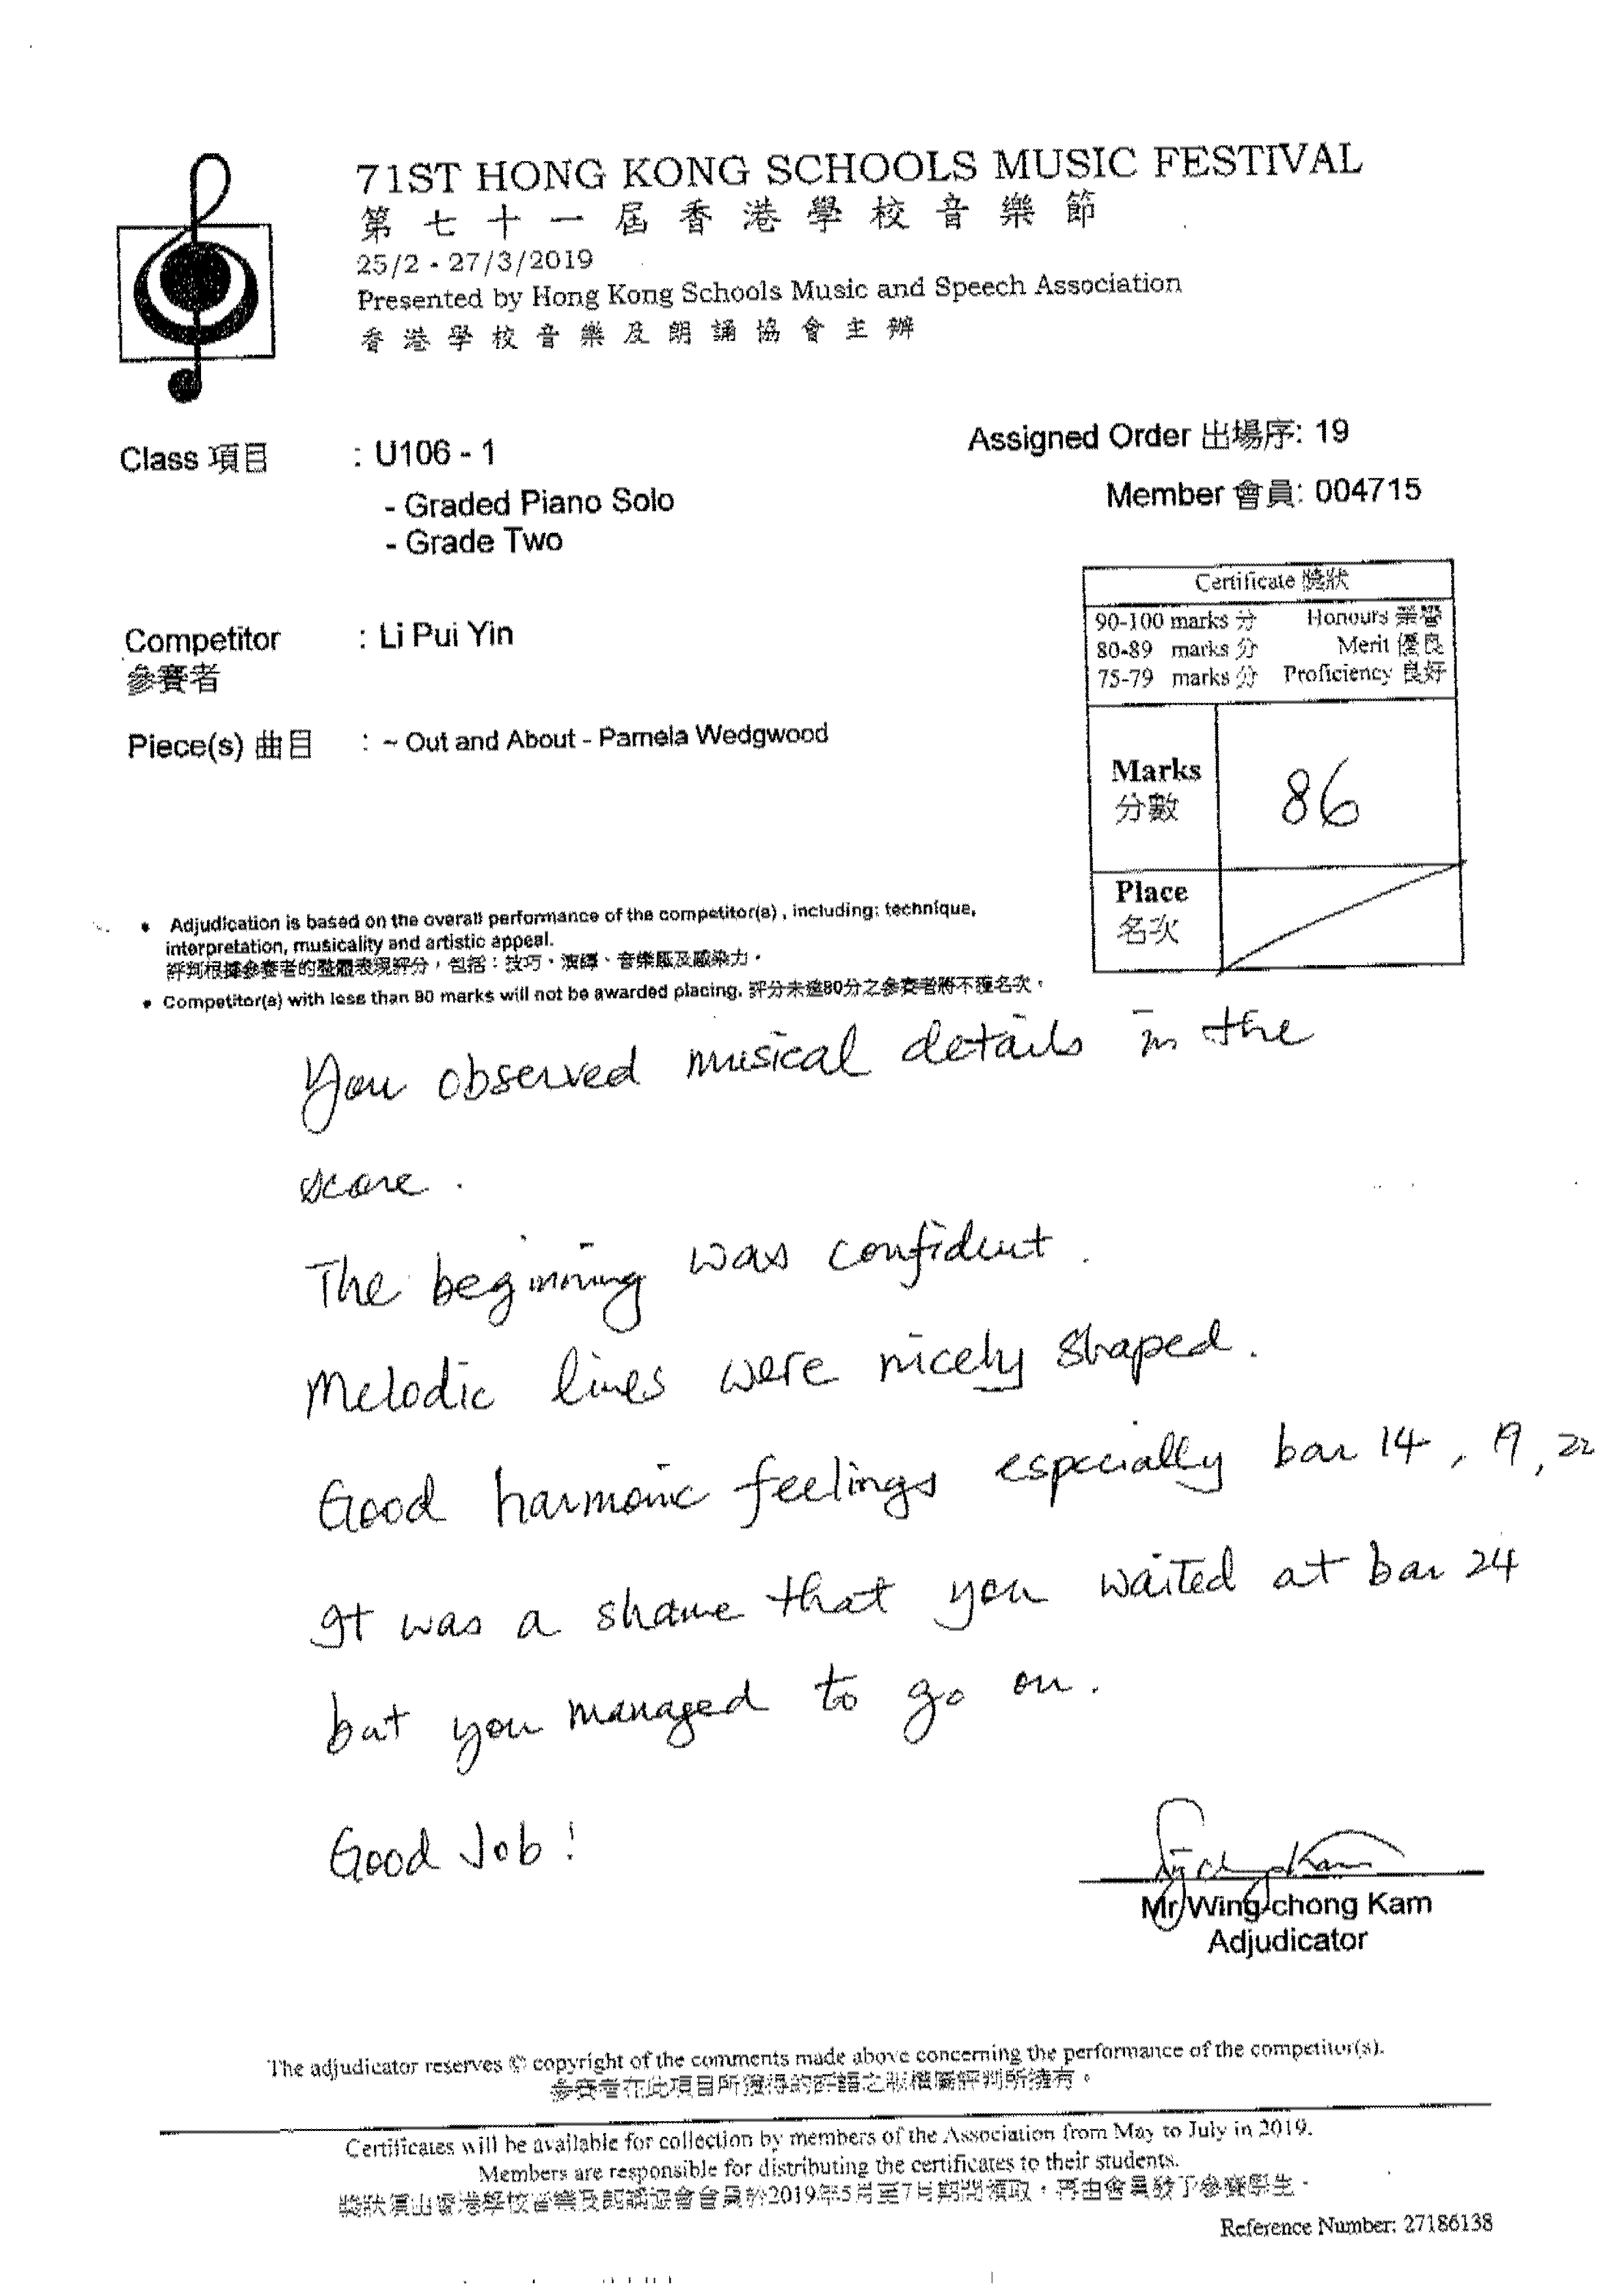 71ST HONG KONG SCHOOLS MUSIC FESTIVAL
第七十一屆香港學校音樂節
25/2 - 27/3/2019
Presented by Hong Kong Schools Music and Speech Association
香港學校音樂及朗誦協會主辦
Assigned Order 出場序: 19
Class 項目 : U106 - 1
Member 會員: 004715
- Graded Piano Solo
- Grade Two
Certificate 獎狀
90-100 marks 分 Honours 榮譽
80-89 marks 分 Merit 優良
75-79 marks 分 Proficiency 良好
Competitor : Li Pui Yin
參賽者
Piece(s) 曲目 : ~ Out and About - Pamela Wedgwood
Marks 86
分數
Place
名次
• Adjudication is based on the overall performance of the competitor(s) , including: technique,
interpretation, musicality and artistic appeal.
評判根據參賽者的整體表現評分，包括：技巧、演繹、音樂感及感染力。
• Competitor(s) with less than 80 marks will not be awarded placing. 評分未達80分之參賽者將不獲名次。
You observed musical details in the
score.
The beginning was confident.
Melodic lines were nicely shaped.
Good harmonic feelings especially bar 14, 19, 22
It was a shame that you waited at bar 24
but you managed to go on.
Good Job!
Mr Wing-chong Kam
Adjudicator
The adjudicator reserves © copyright of the comments made above concerning the performance of the competitor(s).
參賽者在此項目所獲得的評語之版權屬評判所擁有。
Certificates will be available for collection by members of the Association from May to July in 2019.
Members are responsible for distributing the certificates to their students.
獎狀須由香港學校音樂及朗誦協會會員於2019年5月至7月期間領取，再由會員發予參賽學生。
Reference Number: 27186138